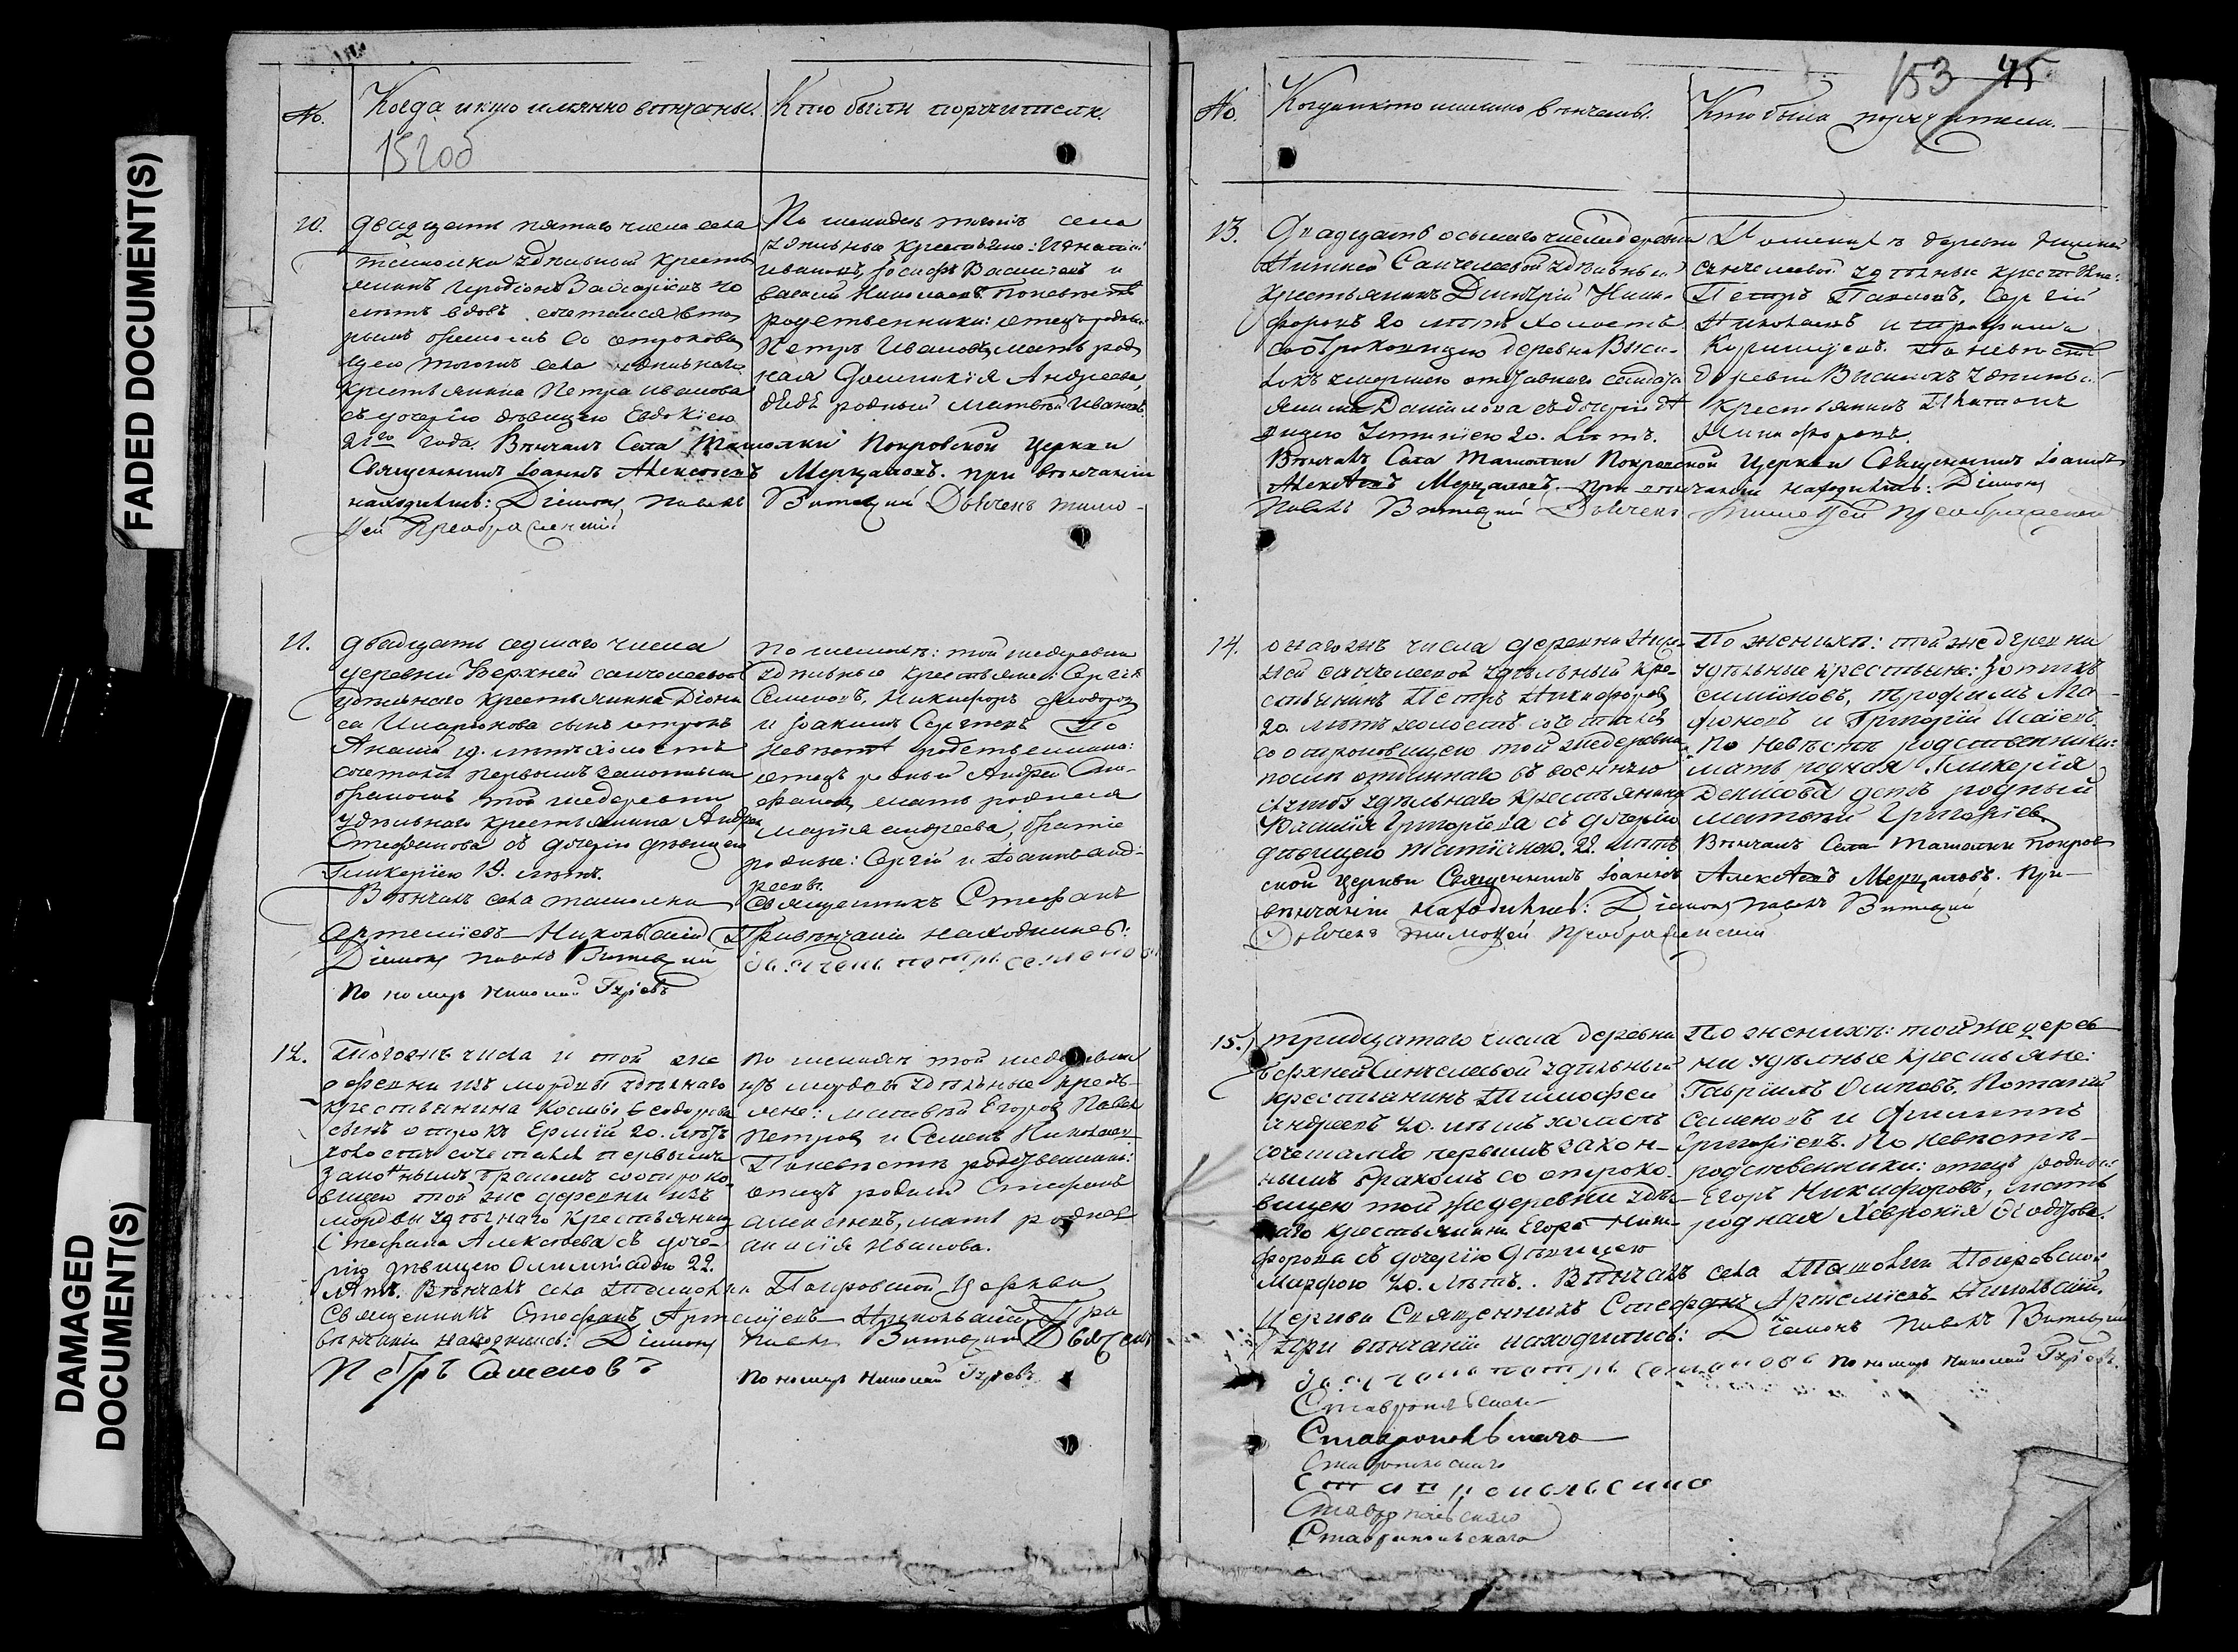 FADED DOCUMENT(S)
DAMAGED
DOCUMENT(S)
№.
Когда и кто имянно венчаны.
Кто были поручители.
152об
10.
двадцать пятаго числа села
Ташолки удѣльный кресть
янинъ Иродіонъ
лѣтъ вдовъ сочетался вто
рымъ бракомъ со отрокови
цею тогожъ села удѣльнаго
крестьянина Петра Иванова
съ дочерію дѣвицею Евдокіею
21го года. Вѣнчалъ Села Ташолки Покровской Церкви
Священникъ Іоаннъ Алексѣевъ Мерцаловъ. при вѣнчаніи
находились: Діаконъ Павелъ Витевскій Дьячекъ Тимо-
ѳей Преображенскій
По женихѣ тогожъ села
удѣльные крестьяне: Игнатій
Ивановъ, Іосифъ Васильевъ и
Василій Николаевъ. По невѣстѣ
родственники: отецъ родный
Петръ Ивановъ, мать род
ная Домникія Андреева,
дѣдъ родный Матвѣй Ивановъ.
11.
двадцать седмаго числа
деревни Верхней Санчелеевой
удѣльнаго крестьянина Діони
са Иларіонова сынъ отрокъ
Ананій 19. лѣтъ холостъ
сочетался первымъ законнымъ
бракомъ той же деревни
удѣльнаго крестьянина Андрея
Стефанова съ дочерію дѣвицею
Гликеріею 19. лѣтъ.
Вѣнчалъ села Ташолки священникъ Стефанъ
Артеміевъ Никольскій При вѣнчаніи находились:
Діаконъ Павелъ Витевскій дьячекъ Петръ Семеновъ
По номарь Николай Гурьевъ
по женихѣ: той же деревни
удѣльные крестьяне: Сергѣй
Семеновъ, Никифоръ Ѳеодоровъ
и Іоакимъ Сергѣевъ По
невѣстѣ родственники:
отецъ родный Андрей Сте-
фановъ, мать родная
Марія Андреева, братіе
родные: Сергій и Іоаннъ Анд-
реевы.
12.
Тогожъ числа и той же
деревни изъ мордвы удѣльнаго
крестьянина Космы Ѳеодорова
сынъ отрокъ Ермій 20. лѣтъ
холостъ сочетался первымъ
законнымъ бракомъ со отроко
вицею той же деревни изъ
мордвы удѣльнаго крестьянина
Стефана Алексѣева съ доче-
рію дѣвицею Олимпіадою 22.
лѣтъ. Вѣнчалъ села Ташолки Покровской церкви
Священникъ Стефанъ Артеміевъ Никольскій При
вѣнчаніи находились: Діаконъ Павелъ Витевскій Дьячекъ
Петръ Семеновъ По номарь Николай Гурьевъ
по женихѣ той же деревни
изъ мордвы удѣльные кресть-
яне: Матвѣй Егоровъ Павелъ
Петровъ и Семенъ Николаевъ
По невѣстѣ родственники:
отецъ родный Стефанъ
Алексѣевъ, мать родная
Анисія Иванова.
153 45
№.
Когда и кто имянно вѣнчаны.
Кто были поручители.
13.
Двадцать осьмаго числа деревни
Нижней Санчелеевой удѣльный
крестьянинъ Димитрій Ники-
форовъ 20 лѣтъ холостъ
со отроковицею деревни Выси-
локъ умершаго отставнаго солдата
Данилова съ дочерію дѣ
вицею 20. лѣтъ.
Вѣнчалъ Села Ташолки Покровской Церкви Священникъ Іоаннъ
Алексѣевъ Мерцаловъ. при вѣнчаніи находились: Діаконъ
Павелъ Витевскій Дьячекъ Тимоѳей Преображенскій
По женихѣ деревни Нижней
Санчелеевой удѣльные крестьяне:
Петръ Павловъ, Сергій
Николаевъ и Трофимъ
По невѣстѣ
деревни Выселокъ удѣльный
крестьянинъ Платонъ
Никифоровъ.
14.
онагожъ числа деревни Ниж-
ней Санчелеевой удѣльный кре-
стьянинъ Петръ Никифоровъ
20. лѣтъ холостъ сочетался
со отроковицею той же деревни
послѣ отданнаго въ военную
службу удѣльнаго крестьянина
Василія Григорьева съ дочерію
дѣвицею Татіаною. 22. лѣтъ Вѣнчалъ Села Ташолки Покров
ской Церкви Священникъ Іоаннъ Алексѣевъ Мерцаловъ. При-
вѣнчаніи находились: Діаконъ Павелъ Витевскій
Дьячекъ Тимоѳей Преображенскій
По женихѣ: той же деревни
удѣльные крестьяне: Зотикъ
Симіоновъ, Трофимъ Ага-
фоновъ и Григорій Исаіевъ.
По невѣстѣ родственники:
мать родная Гликерія
Денисова дѣдъ родный
Матвѣй Григорьевъ
15.
тридцатаго числа деревни
Верхней Санчелеевой удѣльный
крестьянинъ Тимофей
Андреевъ 20. лѣтъ холостъ
сочетался первымъ закон-
нымъ бракомъ со отроко-
вицею той же деревни удѣль-
наго крестьянина Егора Ники-
форова съ дочерію дѣвицею
Марфою 20. лѣтъ. Вѣнчалъ села Ташолки Покровской
церкви Священникъ Стефанъ Артеміевъ Никольскій.
При вѣнчаніи находились: Діаконъ Павелъ Витевскій
дьячекъ Петръ Семеновъ По номарь Николай Гурьевъ.
По женихѣ: той же дерев
ни удѣлные крестьяне:
Гавріилъ Осиповъ, Потапій
Семеновъ и Филиппъ
Григорьевъ. По невѣстѣ-
родственники: отецъ родный
Егоръ Никифоровъ, мать
родная Хеврокія Ѳеодорова.
Ставропольскаго
Ставропольскаго
Ставропольскаго
Ставропольскаго
Ставропольскаго
Ставропольскаго